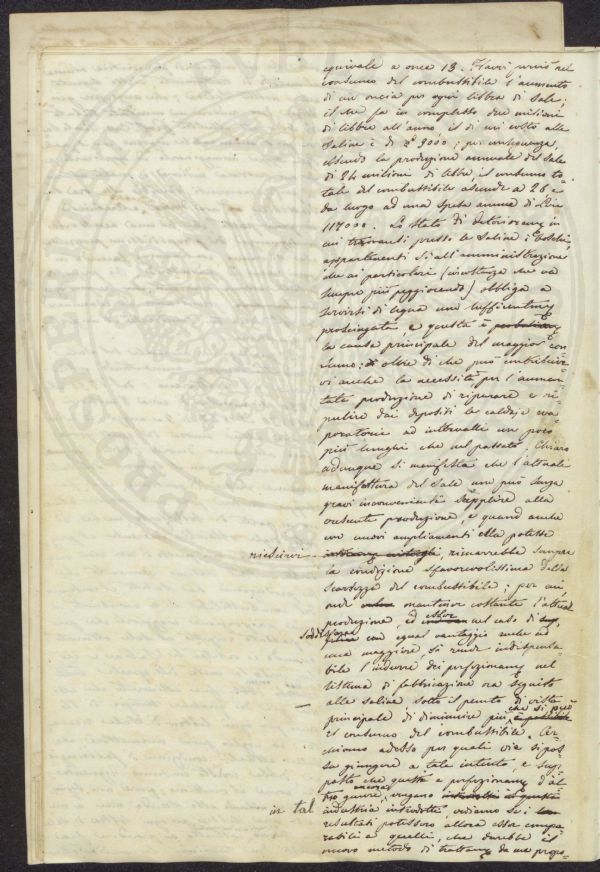 equivale a once 13. Havvi quindi nel
consumo del combustibile l'aumento
di un' oncia per ogni libbra di Sale;
il che fa in complesso due milioni
di libbre all'anno, il di cui costo alle
Saline è di 9000; per conseguenza,
essendo la produzione annuale del Sale
di 24 milioni di libbre, il consumo to-
tale del combustibile ascende a 26, e
da luogo ad una spesa annua di Lire
117000. Lo stato di deterioramento in
cui trovansi presso le Saline i boschi,
appartenenti sì all'amministrazione
che ai particolari (circostanza che va
sempre più peggiorando) obbliga a
servirsi di legna non sufficientemente
prosciugata, e questa è
la causa principale del maggior con-
sumo; oltre di che può contribuir-
vi anche la necessità, per l'aumen-
tata produzione di riparare e ri-
pulire dai depositi le caldaje eva-
poratorie ad intervalli un poco
più lunghi che nel passato. Chiaro
adunque si manifesta che l'attuale
manifattura del Sale non può senza
gravi inconvenienti supplire alla
crescente produzione, e quand'anche
con nuovi ampliamenti ella potesse
riescirvi rimarrebbe sempre
la condizione sfavorevolissima della
scarsezza del combustibile; per cui,
onde mantener costante l'attual
produzione, ed esser nel caso di
soddisfare con egual vantaggio anche ad
una maggiore, si rende indispensa-
bile l'indurre dei perfezionamenti nel
sistema di fabbricazione ora seguito
alle saline sotto il punto di vista
principale di diminuire più che si può
il consumo del combustibile. Cer-
chiamo adesso per quali vie si pos-
sa giungere a tale intento, e sup-
posto che questi perfezionamenti d'al-
tro genere ancora, vengano in tal
industria introdotti, vediamo se i
resultati potessero allora esser compa-
rabili a quelli, che darebbe il
nuovo metodo di trattamento da me propo-